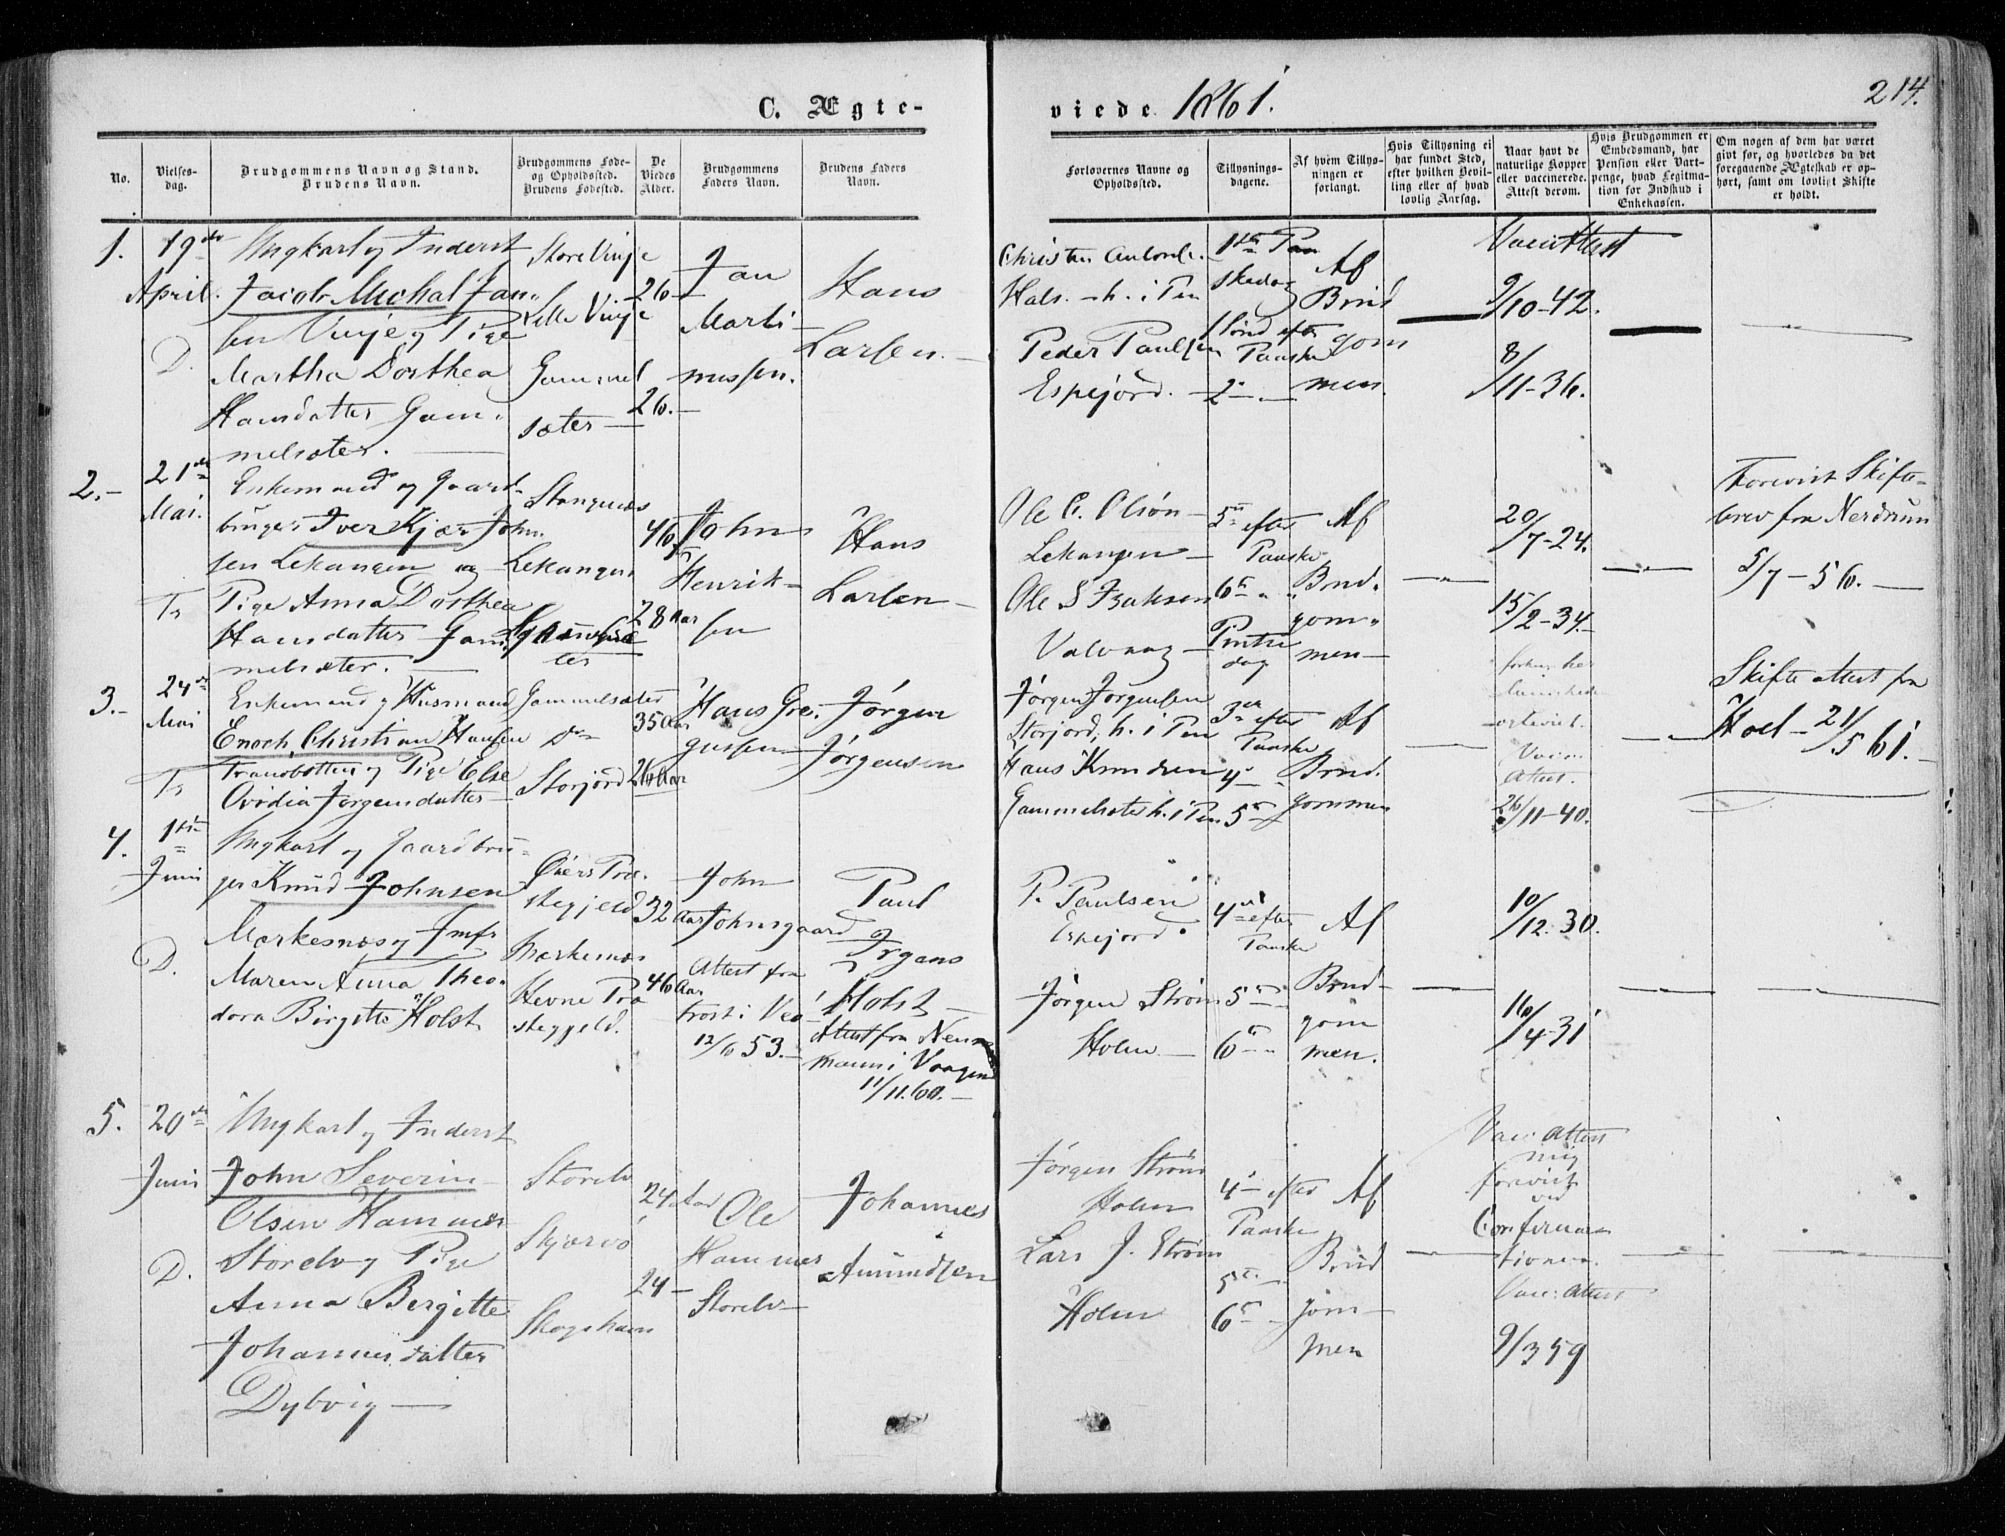 C. Ægte-
viede 1861.
214.
No.
Vielses-
dag.
Brudgommens Navn og Stand.
Brudens Navn.
Brudgommens Føde-
og Opholdssted.
Brudens Fødested.
De
Viedes
Alder.
Brudgommens
Faders Navn.
Brudens Faders
Navn.
Forlovernes Navne og
Opholdssted.
Tillysnings-
dagene.
Af hvem Tillys-
ningen er
forlangt.
Hvis Tillysning ei
har fundet Sted,
efter hvilken Bevil-
ling eller af hvad
lovlig Aarsag.
Naar havt de
naturlige Kopper
eller vaccinerede.
Attest derom.
Hvis Brudgommen er
Embedsmand, har
Pension eller Vart-
penge, hvad Legitma-
tion for Indskud i
Enkekassen.
Om nogen af dem har været
givt før, og hvorledes da det
foregaaende Ægteskab er op-
hørt, samt om lovligt Skifte
er holdt.
1.
19de
April.
D.
Ungkarl og Inderst
Jacob Michal Jan-
sen Vinje og Pige
Martha Dorthea
Hansdatter Gam-
melsæter.
Store Vinje
Lille Vinje
Gammel
sæter
26
26.
Jan
Marti-
nussen.
Hans
Larsen.
Hals. h. i Pen
Peder Paulsen
Espejord.
1 Sønd efter
Paaske
2
Af
Brud
gom
men.
Vacc Attest
9/10-42.
8/11-36.
2.
21de
Mai.
Tr
Enkemand og Gaard-
bruger Iver Kjær John-
sen Lekangen og
Pige Anna Dorthea
Hansdatter Gam-
melsæter.
Stangnæs
Lekangen
46
28 Aar
John
Henrik-
sen
Hans
Larsen
Ole C. Olsøn
Lekangen
Ole S Isaksen
Valvaag
5te efter
Paaske
6te
Pintse
dag
Af
Brud-
gom-
men
20/7-24.
15/2-34.
Forevist Skifte-
brev fra Nerdrum
5/7-56.
3.
24de
Mai
Tr
Enkemand og Husmand
Enoch Christian Hansen
Tranbotten og Pige Else
Ovidia Jørgensdatter
Gammelsæter
Do
Storjord
35 Aar
26 Aar
Hans Gre-
gussen
Jørgen
Jørgensen
Jørgen Jørgensen
Storjord, h. i Pen
Hans Knudsen
Gammelsæter h. i Pen
3die efter
Paaske
4
5te
Af
Brud-
gommen
Vacc.
Attest.
26/11-40.
Skifte attest fra
Hoel 21/5 61.
4.
1ste
Juni
D.
Ungkarl og Gaardbru-
ger Knud Johnsen
Markesnæs og Jmfr
Maren Anna Theo-
dora Birgitte Holst
Øiers Præ-
stegjeld
Markesnæs
Hevne Præ
steggeld.
32 Aar
46 Aar
John
Johnsgaard
Attest fra
12/10 53.
Paul
Irgens
Holst
Attest fra Neu-
mann i Vaagen
11/11.60.
P. Paulsen
Espejord.
Jørgen Strøm
Holm
4de efter
Paaske
5te
6te
Af
Brud-
gom
men.
10/12.30.
16/4-31
5.
20de
Juni
D.
Ungkarl og Inderst
John Severin
Olsen Hammer
Storelv og Pige
Anna Bergitte
Johannesdatter
Dybvig
Storelv
Skjærvø
Skogshavn
24 Aar
24
Ole
Hammer
Storelv
Johannes
Amundsen
Jørgen Strøm
Holm
Lars J. Strøm
Holm
4de efter
Paaske
5te
6te
Af
Brud
gom-
men
Vacc. Attest
mig
forevist
ved
Confirma-
tionen.
Vacc. Attest
9/3 59